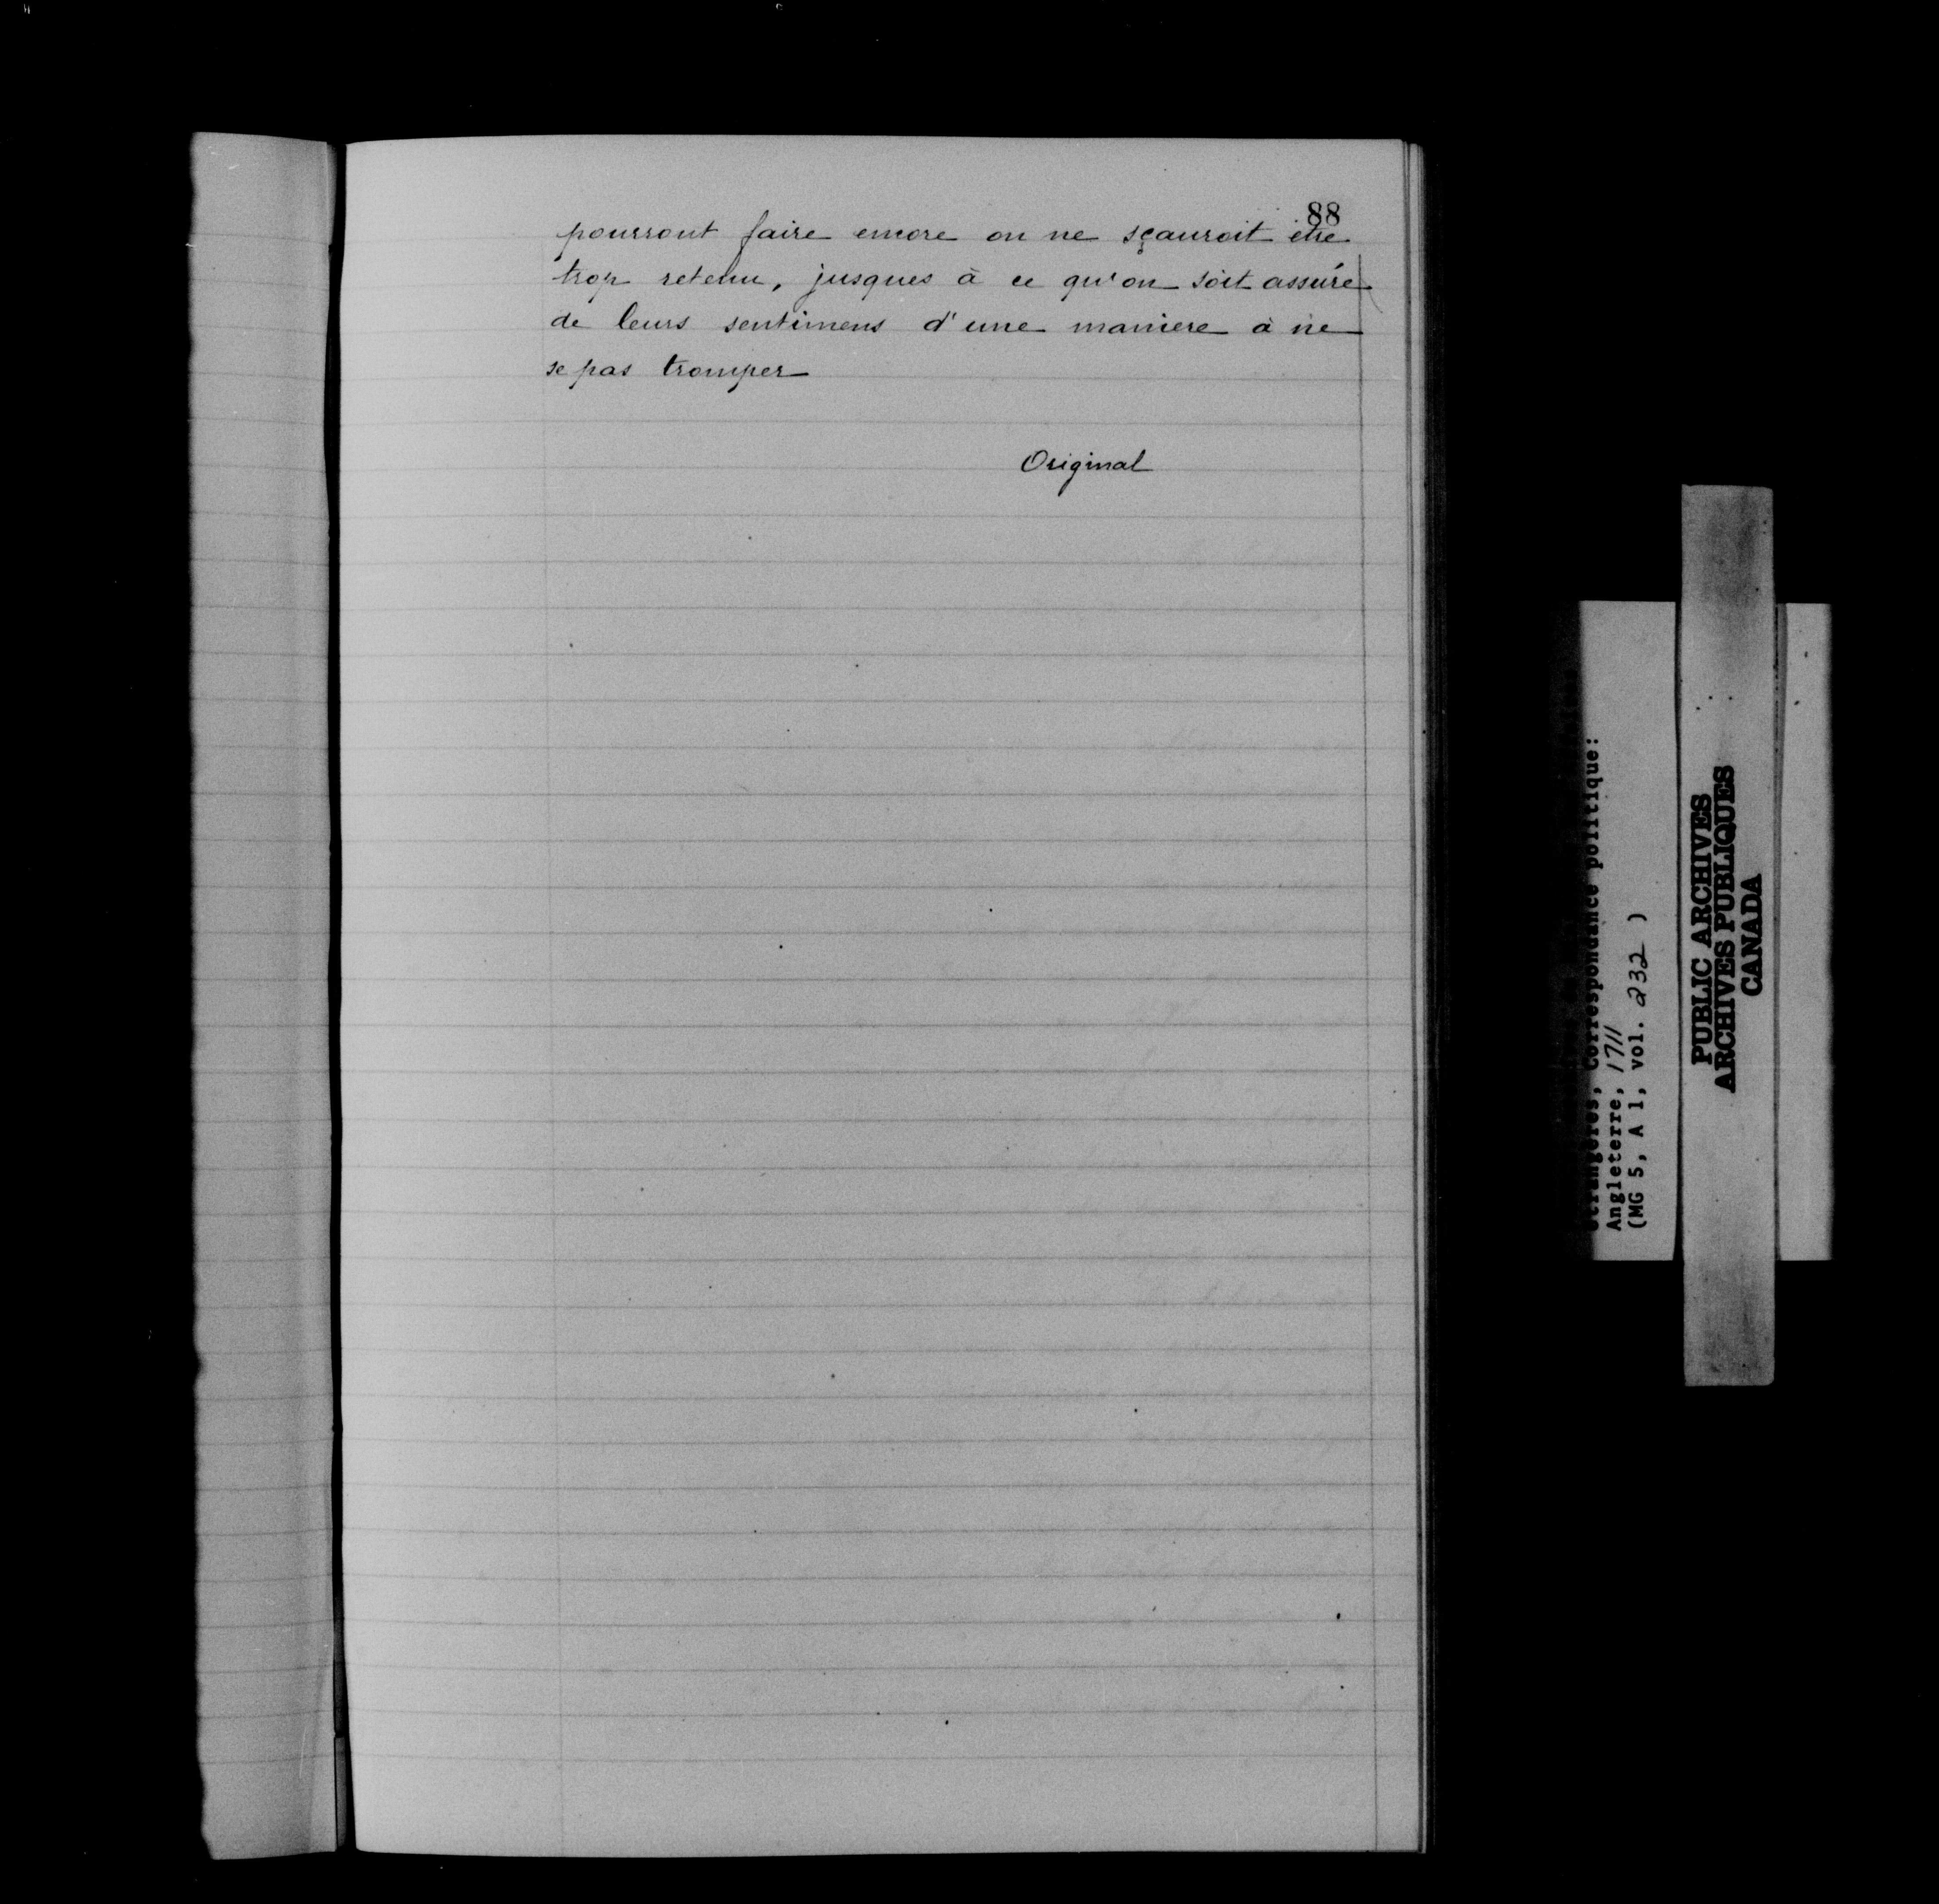 88
pourront faire encore on ne sçauroit etre
trop retenu, jusques à ce qu'on soit assuré
de leurs sentimens d'une maniere à ne
se pas tromper
Original
étrangères, Correspondance politique:
Angleterre, 1711
(MG 5, A 1, vol. 232 )
PUBLIC ARCHIVES
ARCHIVES PUBLIQUES
CANADA